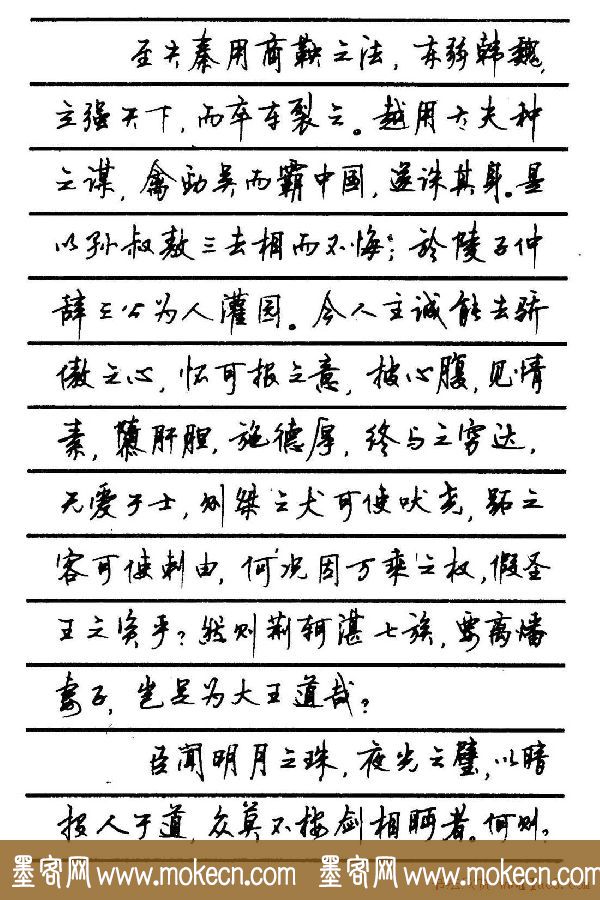 至夫秦用商鞅之法，东弱韩魏，
立强天下，而卒车裂之。越用大夫种
之谋，禽劲吴而霸中国，遂诛其身。是
以孙叔敖三去相而不悔；於陵子仲
辞三公为人灌园。今人主诚能去骄
傲之心，怀可报之意，披心腹，见情
素，隳肝胆，施德厚，终与之穷达，
无爱于士，则桀之犬可使吠尧，跖之
客可使刺由，何况因万乘之权，假圣
王之资乎？然则荆轲湛七族，要离燔
妻子，岂足为大王道哉？
臣闻明月之珠，夜光之璧，以暗
投人于道，众莫不按剑相眄者。何则？
墨客网 www.mokecn.com 墨客网 www.mokecn.com